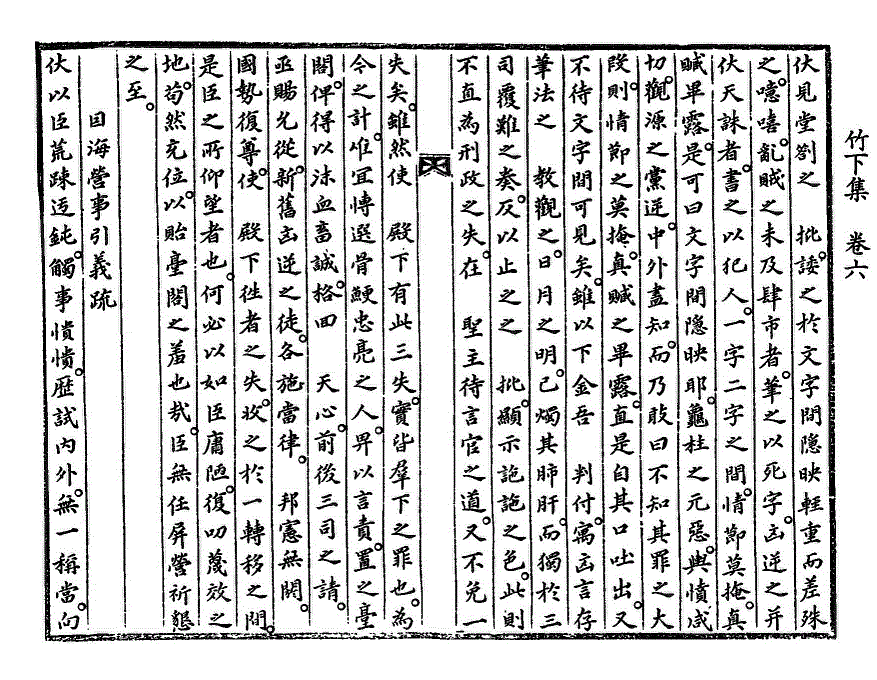 竹下集 卷六
伏見堂劄之 批諉之於文字間隱映輕重而差殊
之噫嘻亂賊之未及肆市者筆之以死字凶逆之幷
伏天誅者書之以犯人一字二字之間情節莫掩眞
贓畢露是可曰文字間隱映耶龜柱之元惡與憤咸
切觀源之黨逆中外盡知而乃敢曰不知其罪之大
段則情節之莫掩眞贓之畢露直是自其口吐出又
不待文字間可見矣雖以下金吾 判付寓凶言存
筆法之 敎觀之日月之明已燭其肺肝而獨於三
司覆難之奏反以止之之 批顯示訑訑之色此則
不直爲刑政之失在 聖主待言官之道又不免一
失矣雖然使 殿下有此三失實皆羣下之罪也爲
今之計惟宜愽選骨鯁忠亮之人畀以言責置之臺
閣俾得以沫血畜誠格回 天心前後三司之請
亟賜允從新舊凶逆之徒各施當律 邦憲無闕
國勢復尊使 殿下徃者之失攺之於一轉移之間
是臣之所仰望者也何必以如臣庸陋復叨蔑效之
地苟然充位以貽臺閣之羞也㢤臣無任屛營祈懇
之至
因海營事引義疏
伏以臣荒踈迃鈍觸事憒憒歷試內外無一稱當向